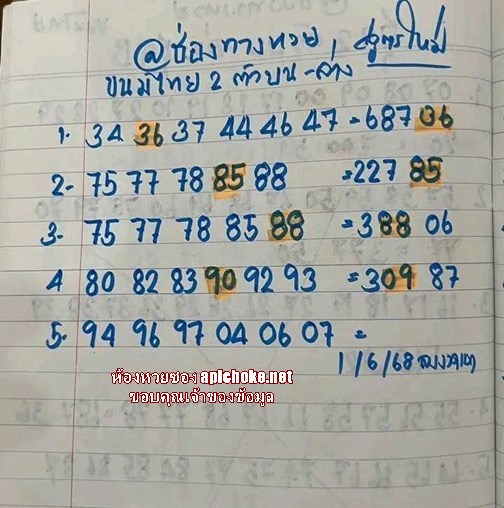 @ช่องทางหวย สูตรใหม่
ขนมไทย 2 ตัวบน-ล่าง
1. 34 36 37 44 46 47 = 687 36
2- 75 77 78 85 88 = 227 85
3- 75 77 78 85 88 = 388 06
4 80 82 83 90 92 93 = 309 87
5. 94 96 97 04 06 07 =
1/6/68
ห้องหวยซอง apichoke.net
ขอบคุณเจ้าของข้อมูล